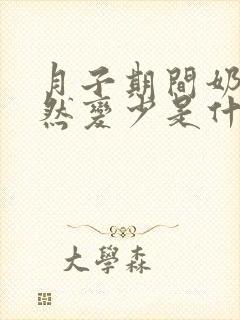 月子期間奶
然變少是什
大學森